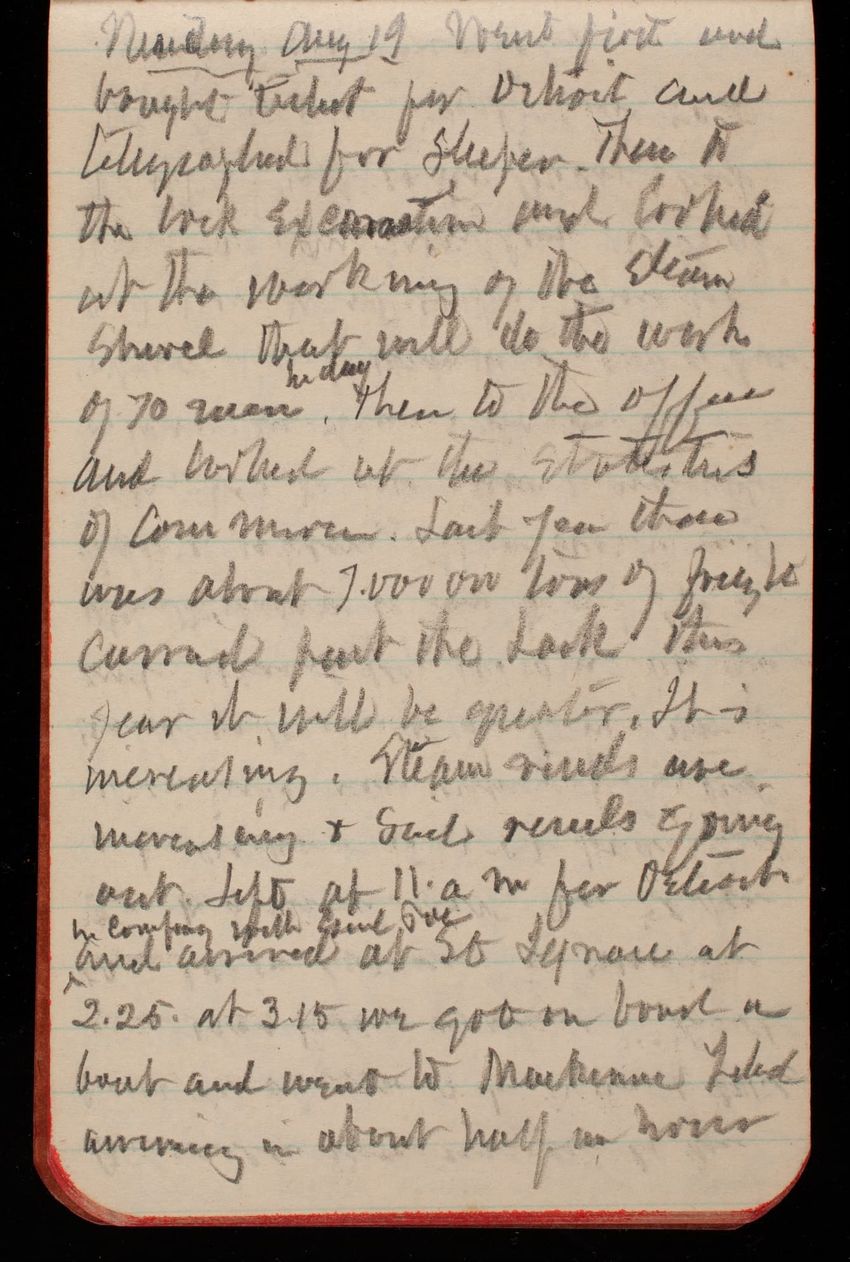 Monday Aug 19 Went first and
bought Ticket for Detroit and
telegraphed for Sleeper. Then to
the lock Excavation and looked
at the working of the Steam
Shovel that will do the work
of 70 men in day. Then to the office
and looked at the Statistics
of Commerce. Last year there
was about 7.000 000 tons of freight
carried past the Lock this
year it will be greater. It is
increasing. Steam vessels are
increasing & Sail vessels & going
out. Left at 11. a m for Detroit
in company with Poe
and arrived at St Ignace at
2.25. at 3.15 we got on board a
boat and went to Mackinac Island
arriving in about half an hour